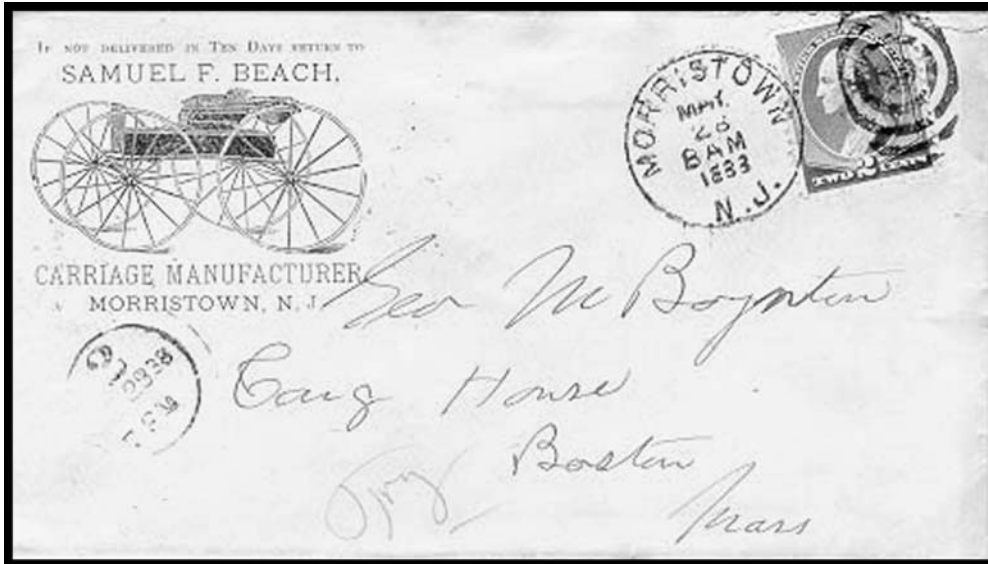 IF NOT DELIVERED IN TEN DAYS RETURN TO
SAMUEL F. BEACH,
CARRIAGE MANUFACTURER
MORRISTOWN, N. J.
MORRISTOWN
MAY.
28
8 AM
1883
N.J.
TWO 2 CENTS
Geo M Boynton
House
Boston
Mass